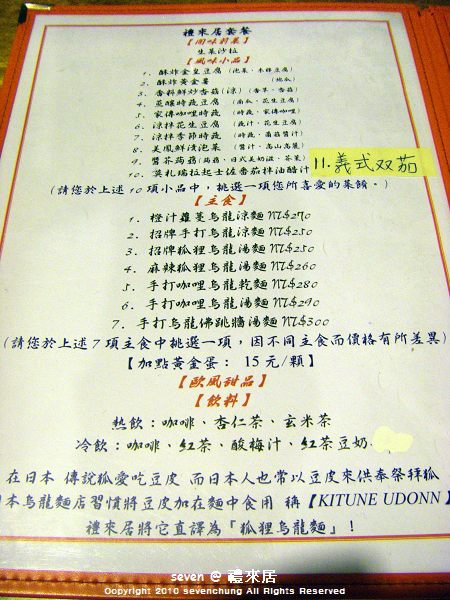 禮來居套餐
【開味前菜】
生菜沙拉
【風味小品】
1. 酥炸金皇豆腐（泡菜、木棉豆腐）
2. 酥炸黃金薯（地瓜）
3. 香料鮮炒香菇（涼）（香草、香菇）
4. 並釀時蔬豆腐（南瓜、花生豆腐）
5. 家傳咖哩時蔬（時蔬、家傳咖哩）
6. 涼拌花生豆腐（蔬汁、花生豆腐）
7. 涼拌季節時蔬（時蔬、蘑菇醬汁）
8. 美鳳鮮漬泡菜（醬汁、高山高麗）
9. 醬芥蒟蒻（蒟蒻、日式美奶滋、芥茉）
10. 莫札瑞拉起士佐番茄拌油醋汁
11. 義式双茄
（請您於上述10項小品中，挑選一項您所喜愛的菜餚。）
【主食】
1. 橙汁蘿蔓烏龍涼麵NT$270
2. 招牌手打烏龍涼麵NT$250
3. 招牌狐狸烏龍湯麵NT$250
4. 麻辣狐狸烏龍湯麵NT$260
5. 手打咖哩烏龍乾麵NT$280
6. 手打咖哩烏龍湯麵NT$290
7. 手打烏龍佛跳牆湯麵NT$300
（請您於上述7項主食中挑選一項，因不同主食而價格有所差異）
【加點黃金蛋： 15元/顆】
【歐風甜品】
【飲料】
熱飲：咖啡、杏仁茶、玄米茶
冷飲：咖啡、紅茶、酸梅汁、紅茶豆奶
在日本 傳說狐愛吃豆皮 而日本人也常以豆皮來供奉祭拜狐
日本烏龍麵店習慣將豆皮加在麵中食用 稱【KITUNE UDONN】
禮來居將它直譯為「狐狸烏龍麵」！
seven @ 禮來居
Copyright 2010 sevenchung All Rights Reserved